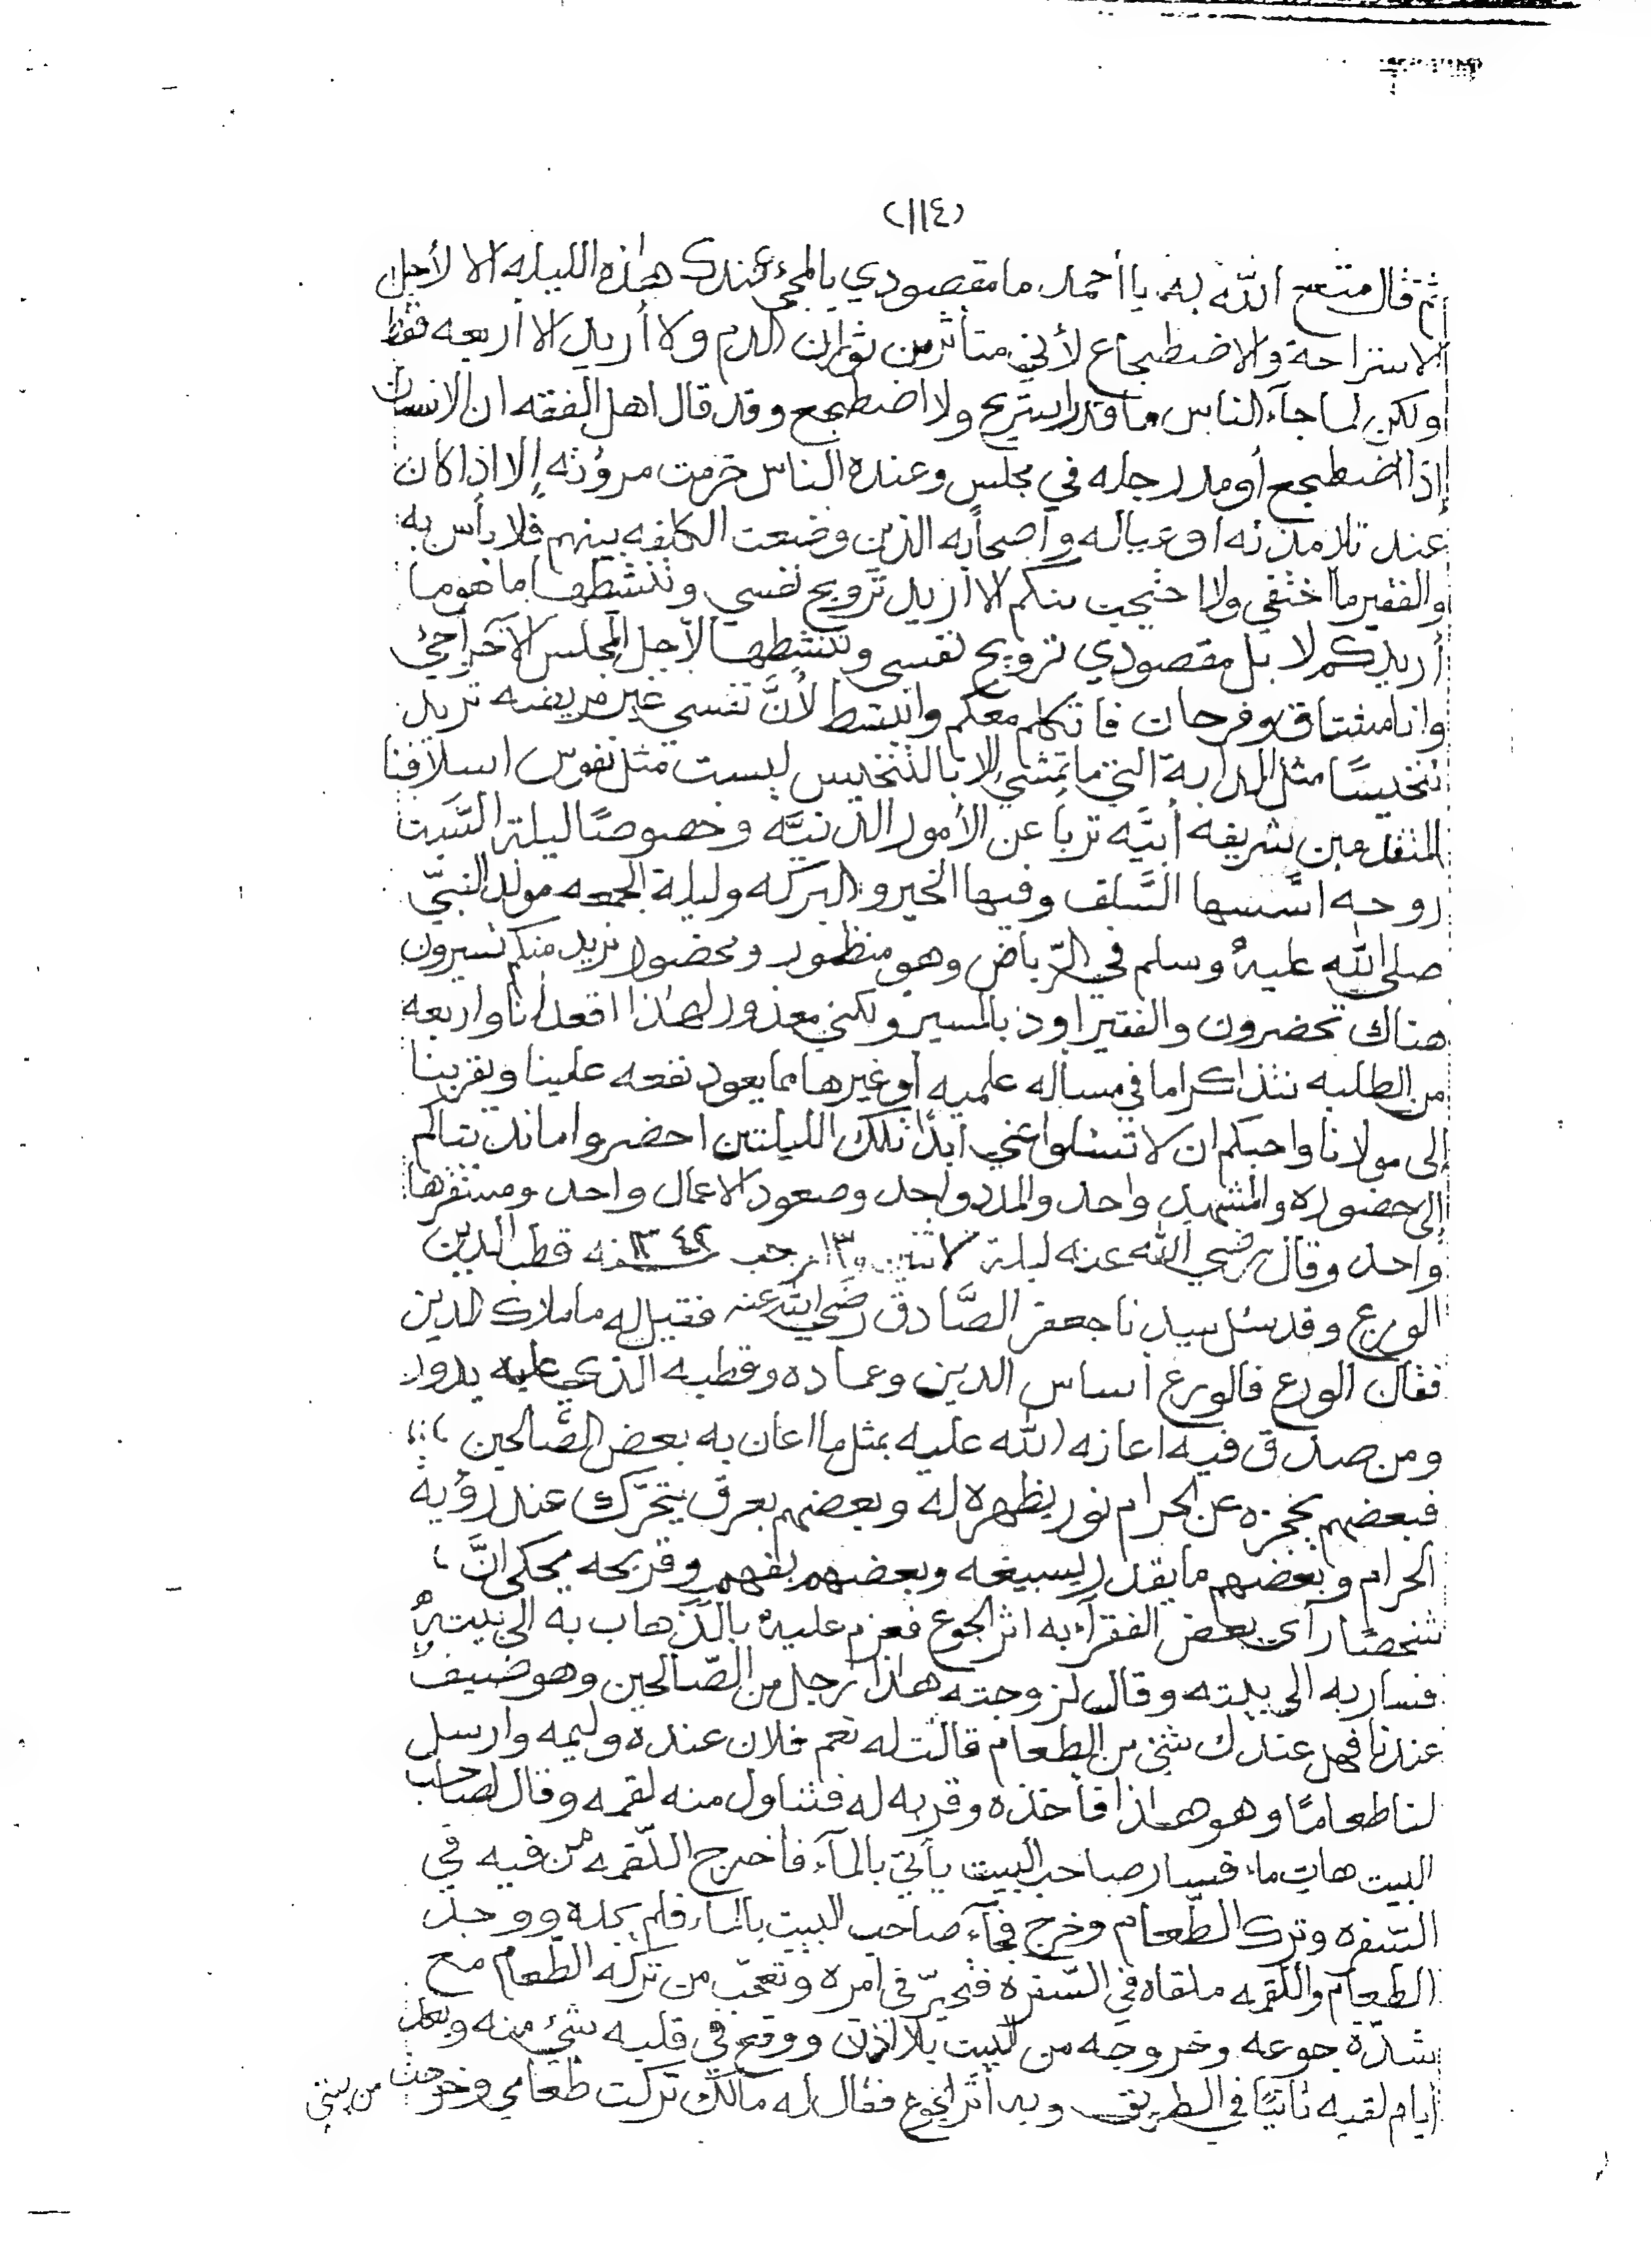 (١١٤)
ثم قال متع الله به يا أحمد ما مقصودي بالمجئ عندك هذه الليله الا لأجل
الاستراحة والاضطجاع لأني متأثر من ثوران الدم ولا أريد الا اربعه فقط
ولكن لما جآء الناس ما قدرا ستريح ولا اضطجع وقد قال اهل الفقه ان الانسان
إذا اضطجع أو مدد رجله في مجلس وعنده الناس خرمت مروْته إلا اذا كان
عند تلامذته او عياله وأصحابه الذين وضعت الكلفه بينهم فلا بأس به
والفقير ما اختفي ولا احتجيت منكم لا اريد ترويح نفسي وتنشطها ما هو ما
أريدكم لا بل مقصودي ترويح نفسي وتنشطها لأجل المجلس الآخر أجئ
وانا مشتاق وفرحان فاتكلم معكم وانتشط لأنَّ نفسي غير مريضه تريد
تنخيسًا مثل الدابة التي ما تمشي إلا بالتنخيس ليست مثل نفوس اسلافنا
المتقدمين شريفه أبيَّه تربأ عن الأمور الدنيَّه وخصوصًا ليلة السَّبت
روحه اسَّسها السَّلف وفيها الخير والبركه وليلة الجمعه مولد النبيّ
صلى الله عليه وسلم في الرّياض وهو منظور ومحضور نريد منكم تسيرون
هناك تحضرون والفقير اود بالمسير ولكني معذور لهذا اقعد أنا واربعه
من الطلبه نتذاكر اما في مساله علميه أو غيرها مما يعود نفعه علينا ويقربنا
إلى مولانا واحبكم ان لا تسئلوا عني أبدًا تلك الليلتين احضروا ما ندبتاكم
إلى حضوره والمشهد واحد والمدد واحد وصعود الاعمال واحد ومستقرها
واحد وقال رضي الله عنه ليلة الاثنين ١٣ رجب ١٣٤٢ سنه قطب الدين
الورع وقد سئل سيدنا جعفر الصَّادق رضي الله عنه فقيل له ما ملاك الدين
فقال الورع فالورع اساس الدين وعماده وقطبه الذي عليه يدور
ومن صدق فيه اعانه الله عليه بمثل ما اعان به بعض الصَّالحين
فبعضهم يحجزه عن الحرام نور يظهره له وبعضهم بعرق يتحرَّك عند رؤية
الحرام وبعضهم ما يقدر يسيغه وبعضهم بفهم وقريحه يحكى انَّ
شخصًا رأى بعض الفقرآء به اثر الجوع فعزم عليه بالذَّهاب به الى بيته
فسار به الى بيته وقال لزوجته هذا رجل من الصّالحين وهو ضيف
عندنا فهل عندك شئ من الطعام قالت له نعم فلان عنده وليمه وارسل
لنا طعامًا وهو هذا فأخذه وقربه له فتناول منه لقمه وقال لصاحب
البيت هات ماء فسار صاحب البيت يأتي بالمآء فاخرج اللّقمه من فيه في
السّفره وترك الطّعام وخرج فجآء صاحب البيت بالمآء فلم يجده ووجد
الطعام واللقمه ملقاه في السّفره فتحيرّ في امره وتعجّب من تركه الطّعام مع
شدّة جوعه وخروجه من البيت بلا اذن ووقع في قلبه شئ منه وبعد
أيام لقيه ثانيًا في الطريق وبه أثر الجوع فقال له مالك تركت طعامي وخرجت من بيتي